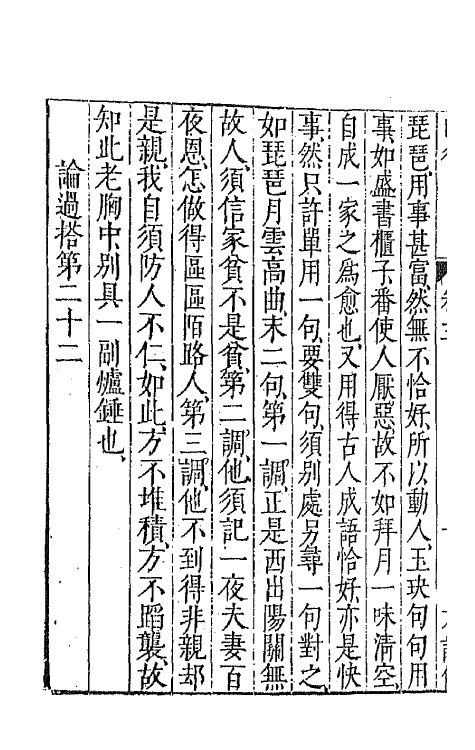 琵琶、用事甚富、然無不恰好、所以動人、玉玦句句用
事、如盛書櫃子、番使人厭惡、故不如拜月一味清空、
自成一家之爲愈也、又用得古人成語恰好、亦是快
事、然只許單用一句、要雙句、須别處另尋一句對之、
如琵琶月雲高曲、末二句、第一調、正是西出陽關無
故人、須信家貧不是貧、第二調、他須記一夜夫妻百
夜恩、怎做得區區陌路人、第三調、他不到得非親却
是親、我自須防人不仁、如此、方不堆積、方不蹈襲、故
知此老胸中、别具一副爐錘也、
論過搭第二十二